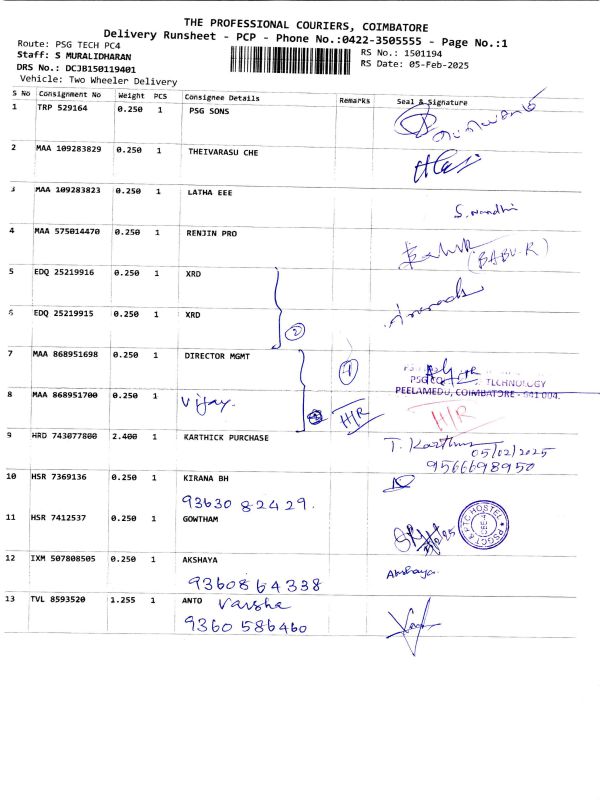 THE PROFESSIONAL COURIERS, COIMBATORE
Delivery Runsheet - PCP - Phone No.:0422-3505555 - Page No.:1
Route: PSG TECH PC4
Staff: S MURALIDHARAN
DRS No.: DCJB150119401
Vehicle: Two Wheeler Delivery
RS No.: 1501194
RS Date: 05-Feb-2025
S No Consignment No Weight PCS Consignee Details Remarks Seal & Signature
1 TRP 529164 0.250 1 PSG SONS
2 MAA 109283829 0.250 1 THEIVARASU CHE
3 MAA 109283823 0.250 1 LATHA EEE
S. Nandhi
4 MAA 575014470 0.250 1 RENJIN PRO
(BABU.R)
5 EDQ 25219916 0.250 1 XRD
6 EDQ 25219915 0.250 1 XRD
2
7 MAA 868951698 0.250 1 DIRECTOR MGMT
TECHNOLOGY
PEELAMEDU, COIMBATORE - 641 004.
8 MAA 868951700 0.250 1 Vijay. H/R H/R
9 HRD 743077800 2.400 1 KARTHICK PURCHASE
05/02/2025
9566698950
10 HSR 7369136 0.250 1 KIRANA BH
93630 82429.
11 HSR 7412537 0.250 1 GOWTHAM
12 IXM 507808505 0.250 1 AKSHAYA
9360864338
Akshaya.
13 TVL 8593520 1.255 1 ANTO Varsha
9360 586460